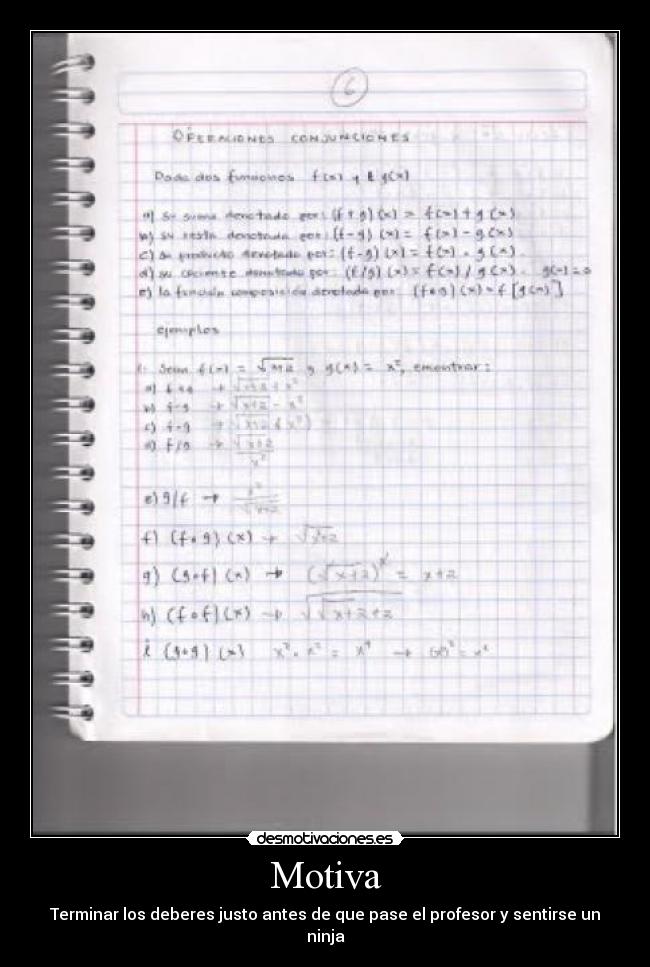 6
OPERACIONES CONJUNCIONES
Dada dos funciones f(x) y g(x)
a) Su suma denotado por: (f+g)(x) = f(x)+g(x)
b) su resta denotada por: (f-g)(x) = f(x)-g(x)
c) Su producto denotado por: (f-g)(x) = f(x) . g(x).
d) su cociente denotado por: (f/g)(x) = f(x)/g(x).
e) la función composición denotada por (f∘g)(x) = f[g(x)]
ejemplos
1. Sean f(x) = √x+2 y g(x) = x², encontrar:
a) f+g → √x+2 + x²
b) f-g → √x+2 - x²
c) f-g → √x+2 (x²)
d) f/g → √x+2
x²
e) g/f → x²
√x+2
f) (f∘g)(x) →
g) (g∘f)(x) → (√x+2)² = x+2
h) (f∘f)(x) → √√x+2+2
i (g∘g)(x) x² . x² = x⁴ →
desmotivaciones.es
Motiva
Terminar los deberes justo antes de que pase el profesor y sentirse un
ninja